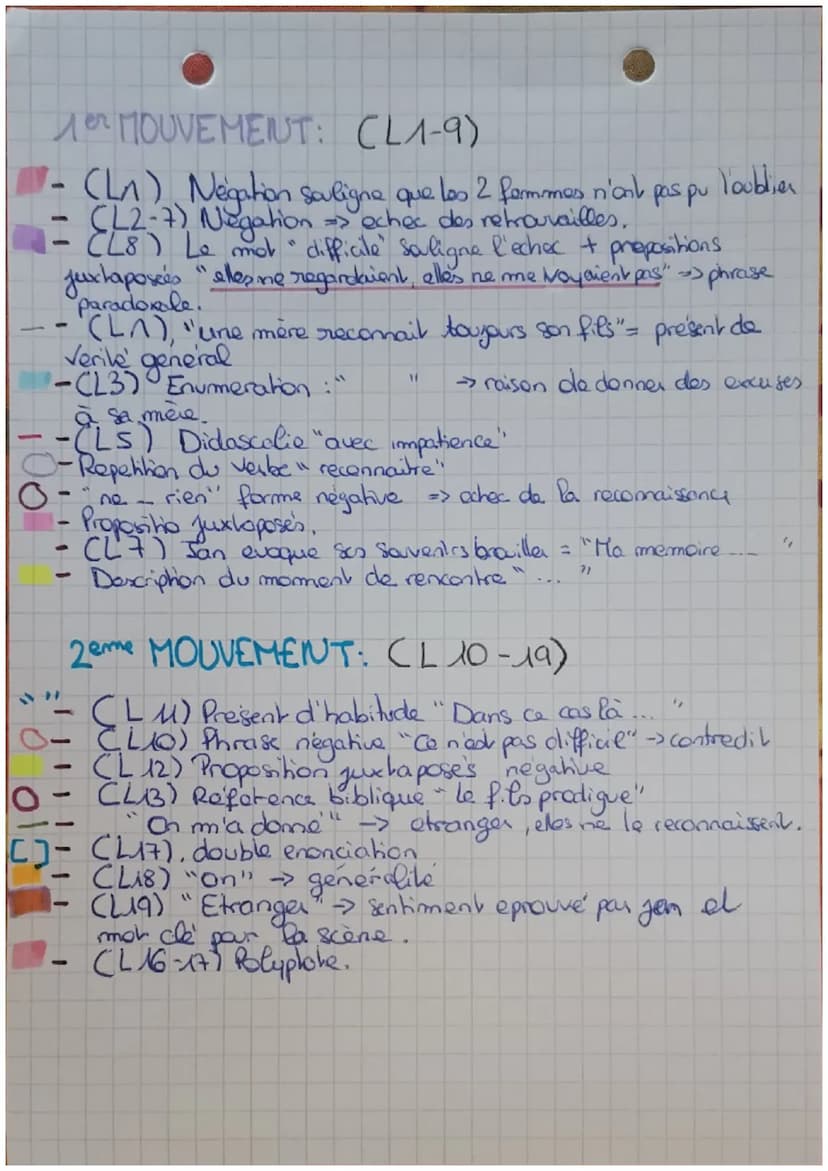 1er MOUVEMENT: (L1-9)
- (L1) Négation souligne que les 2 femmes n'ont pas pu l'oublier
- (L2-7) Négation => echec des retrouvailles.
- (L8) Le mot "difficile" souligne l'echec + prepositions
juxtaposées "elles ne regardaient, elles ne me voyaient pas" => phrase
paradoxale.
- (L1), "une mère reconnait toujours son fils" = présent de
Verité general
- (L3) Enumeration : " " → raison de donner des excuses
à sa mère.
- (L5) Didascalie "avec impatience"
- Repetition du verbe "reconnaitre"
- "ne _ rien" forme négative => echec de la reconnaissance
- Propositio juxtaposés.
- (L7) Jan evoque ses souvenirs brouiller = "Ma memoire .... "
- Description du moment de rencontre "... "
2eme MOUVEMENT: (L 10-19)
- (L 11) Présent d'habitude "Dans ce cas là ... "
- (L10) Phrase négative "Ce n'est pas difficil" → contredit
- (L 12) Proposition juxtaposés négative
- (L13) Réference biblique "le fils prodigue"
- "On m'a donné" → etranger, elles ne le reconnaissent.
- (L17). double enonciation
- (L18) "On" → généralité
- (L19) "Etranger" → sentiment eprouvé par jan et
mot clé par la scène.
- (L16-17) Polyptote.